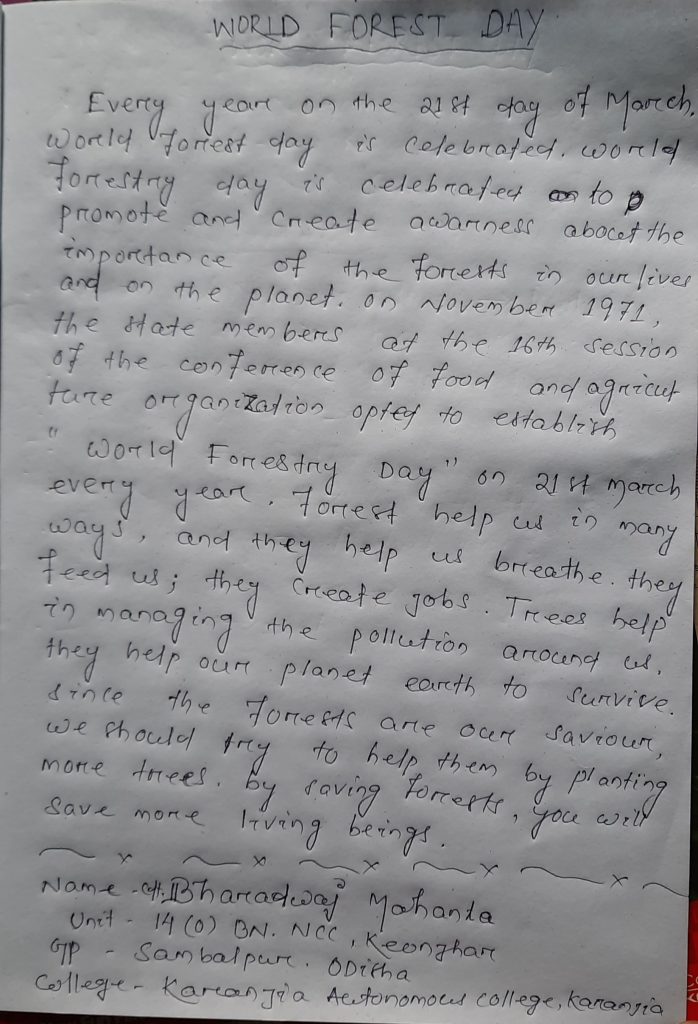 WORLD FOREST DAY
Every year on the 21st day of March,
World forest day is celebrated. world
forestry day is celebrated to
promote and create awarness about the
importance of the forests in our lives
and on the planet. on November 1971,
the state members at the 16th session
of the conference of food and agricul
ture organization opted to establish
" World Forestry Day" on 21st march
every year. forest help us in many
ways, and they help us breathe. they
feed us; they create jobs. Trees help
in managing the pollution around us.
they help our planet earth to survive.
since the forests are our saviour,
we should try to help them by planting
more trees. by saving forests, you will
save more living beings.
Name - Bharadwaj Mahanta
Unit - 14 (O) BN. NCC, Keonjhar
GP - Sambalpur. Odisha
College - Karanjia Autonomous college, Karanjia